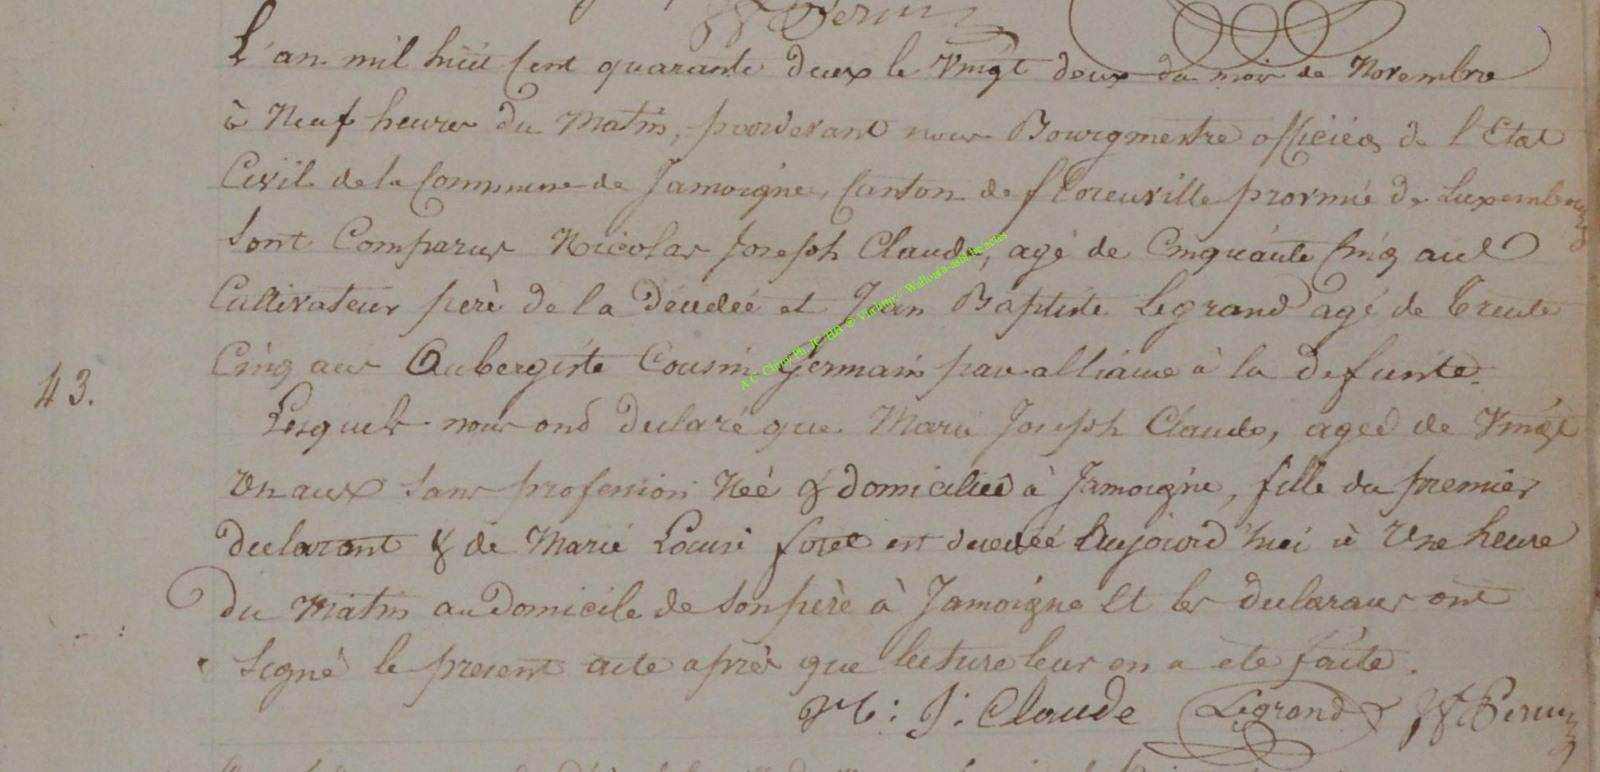 L'an mil huit Cent quarante deux le Vingt deux du mois de Novembre
à Neuf heures du Matin, pardevant nous Bourgmestre officier de l'Etat
Civil de la Commune de Jamoigne, Canton de florenville province de Luxembourg
Sont Comparus Nicolas Joseph Claude, agé de Cinquante Cinq ans
Cultivateur père de la décédée et Jean Baptiste Legrand agé de trente
Cinq ans Aubergiste Cousin germain par alliance à la defunte.
43.
Lesquels nous ond déclaré que Marie Joseph Claude, agée de Vingt
Un ans Sans profession Née & domiciliée à Jamoigne, fille du premier
declarant & de Marie Louise foret est decedée Aujourd'hui à Une heure
du Matin au Domicile de Son père à Jamoigne Et les declarans ont
Signé le present acte après que lecture leur en a eté faite.
N: J: Claude Legrand